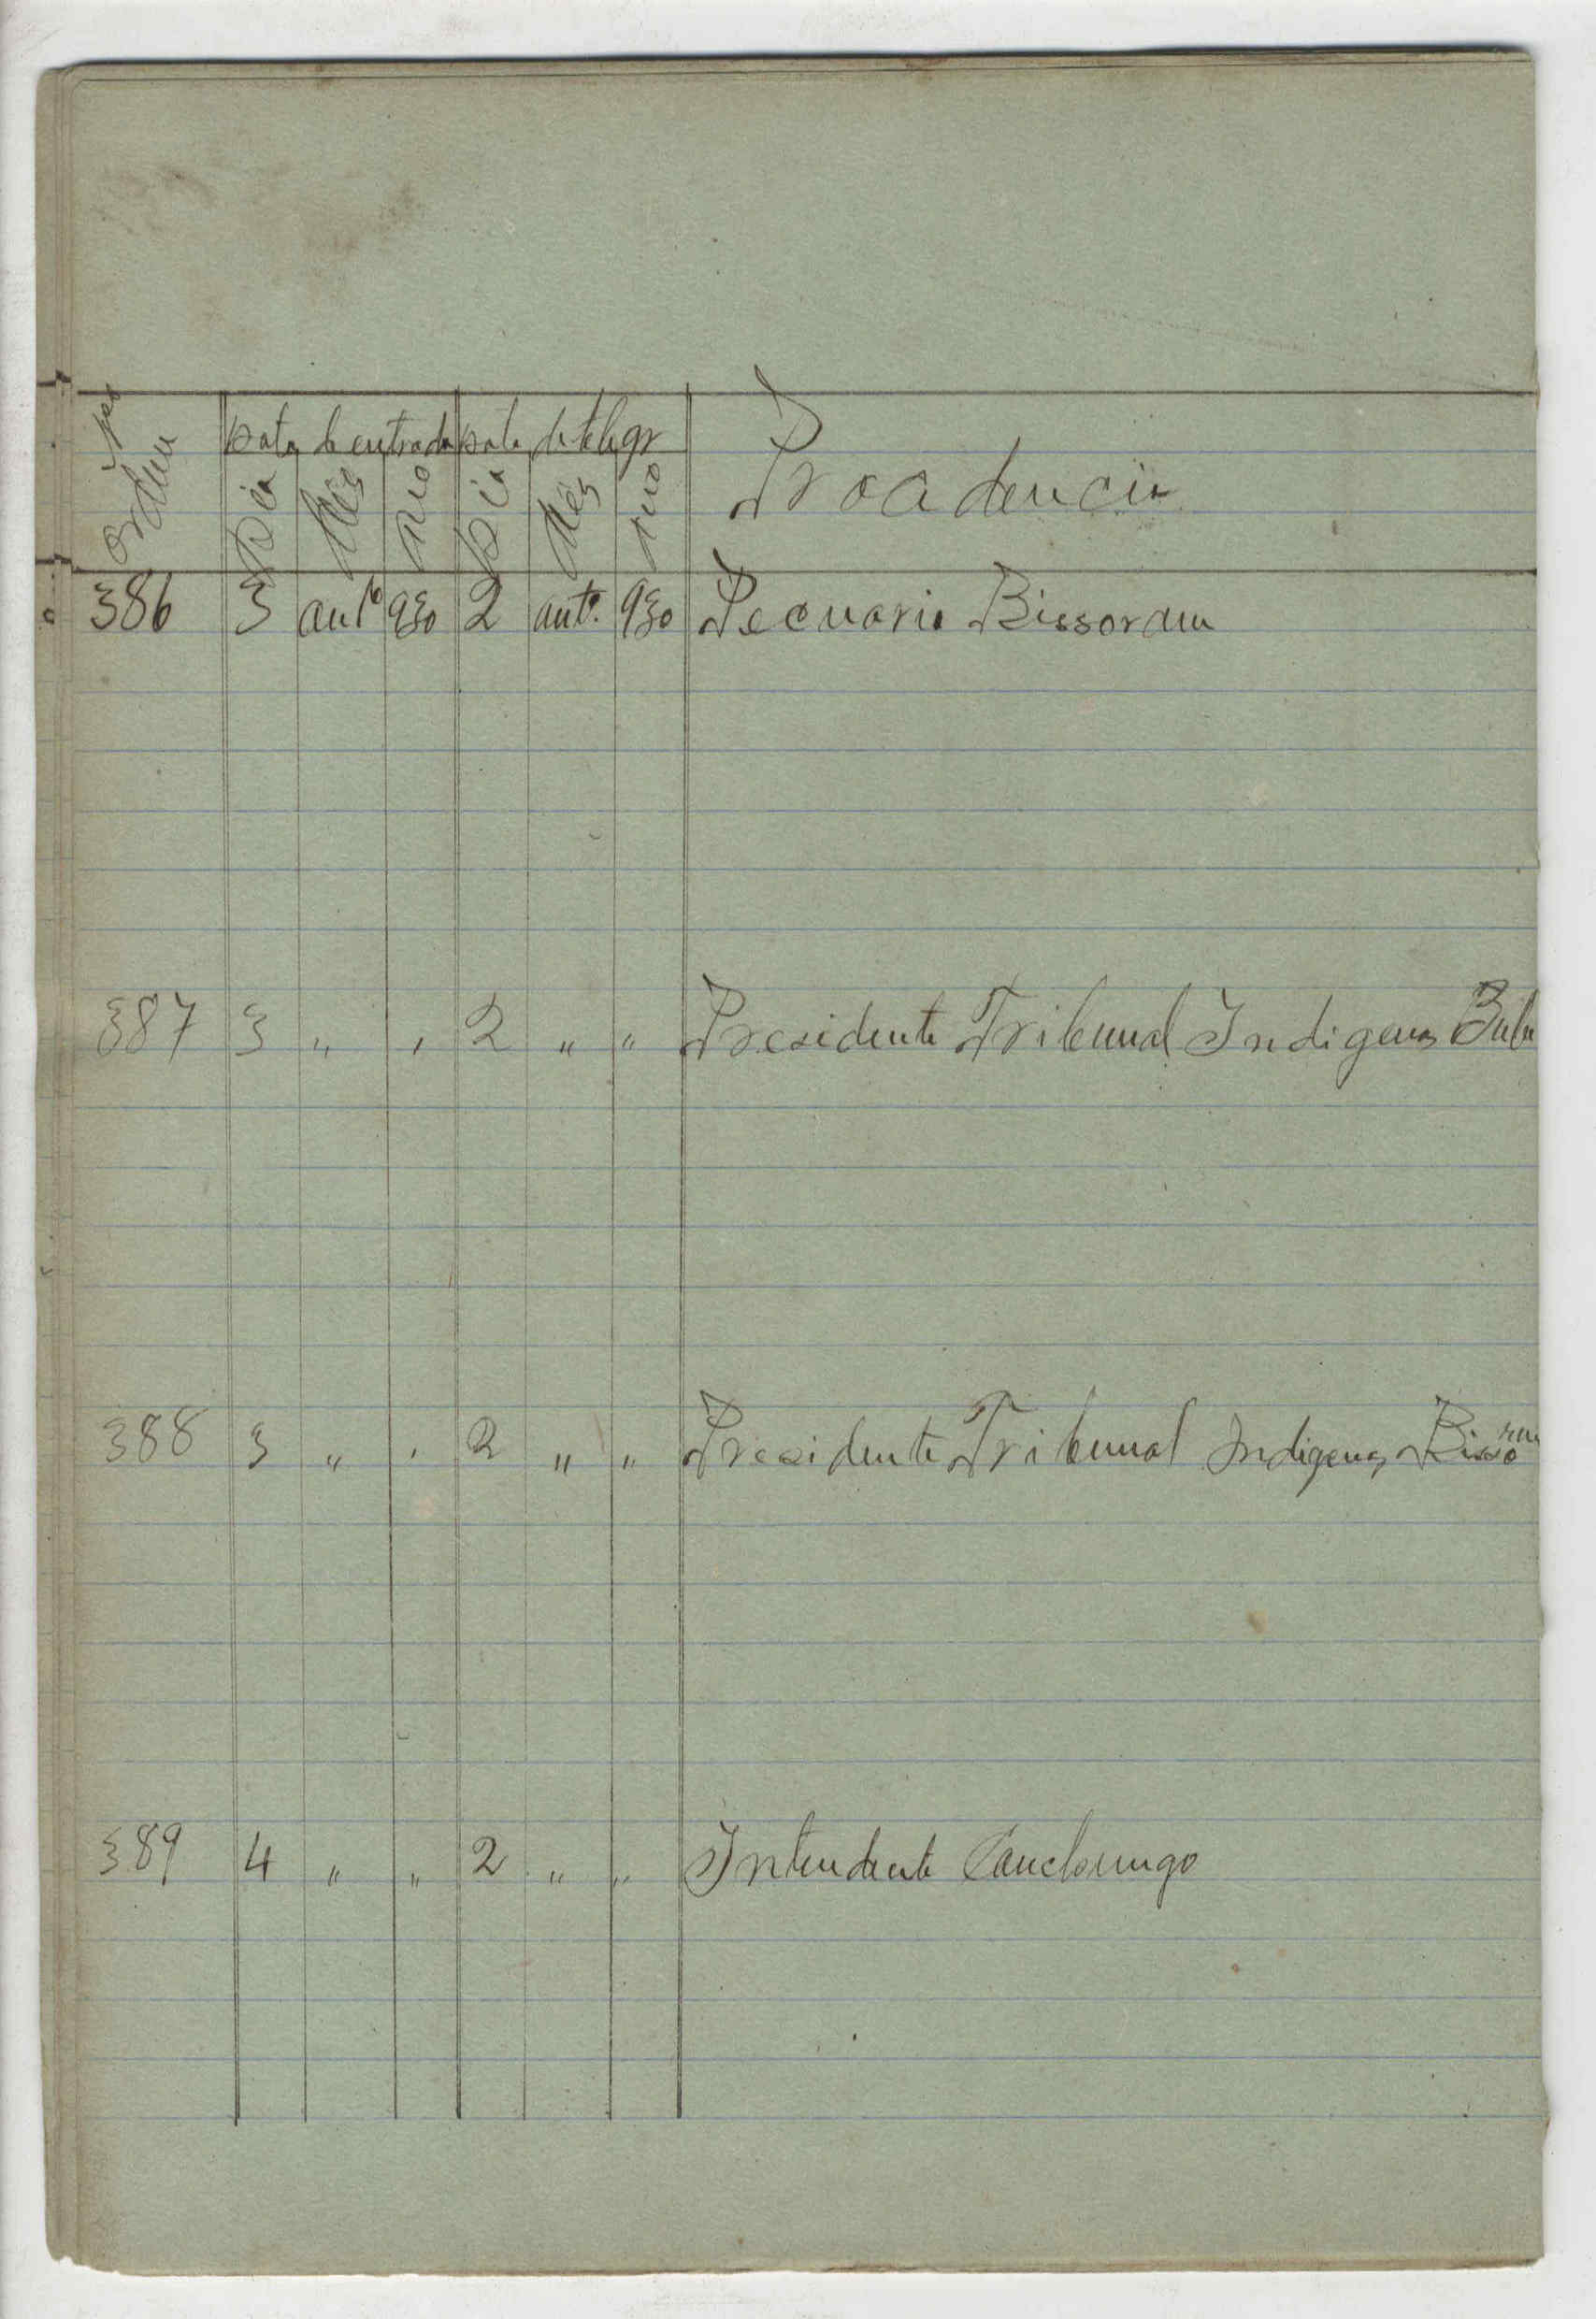 Nºs ordem
Data de entrada Data do telegr
Dia Mês Ano Dia Mês Ano Procedencia
386 3 outº 930 2 outº 930 Pecuario Bissoram
387 3 " " 2 " " Presidente Tribunal Indigenas Bula
388 3 " " 2 " " Presidente Tribunal Indigenas Bissoram
389 4 " " 2 " " Intendente Canchungo